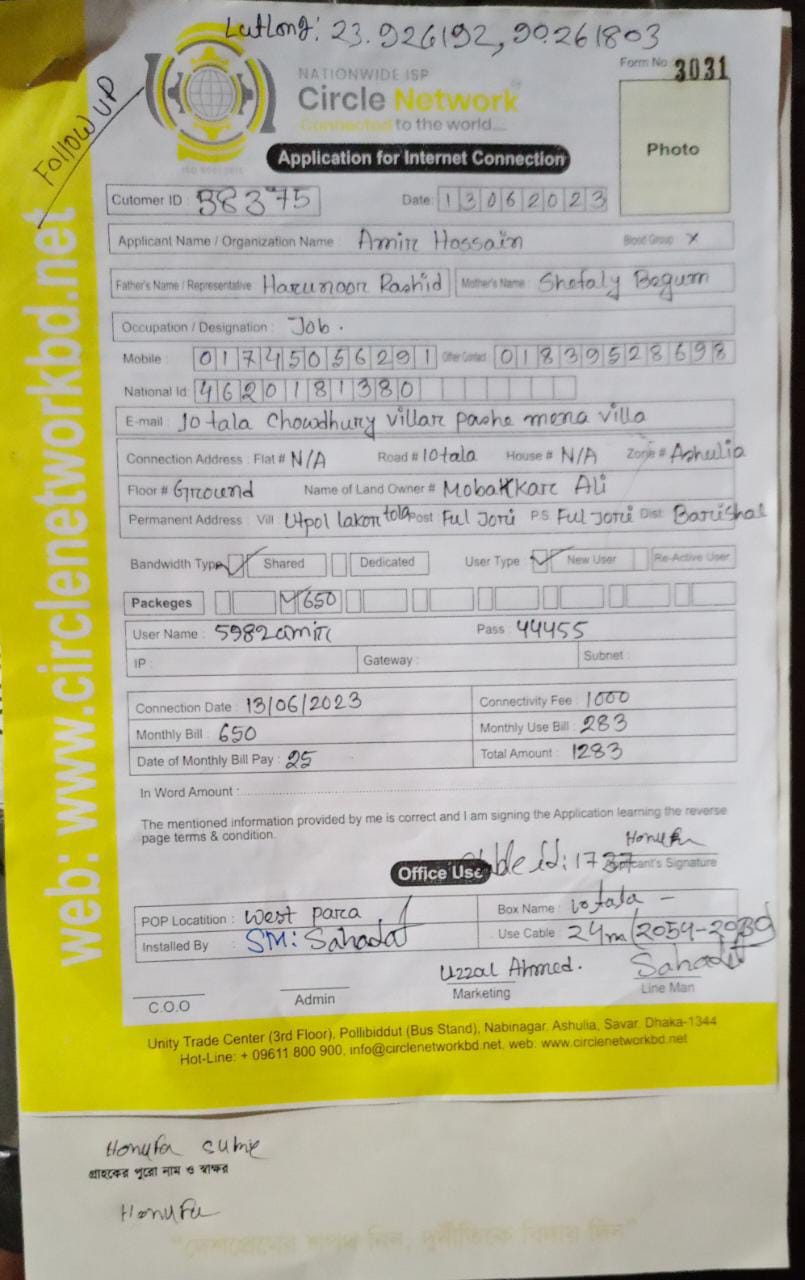 LatLong: 23.926192, 90.261803
Follow UP
NATIONWIDE ISP
Circle Network
Connected to the world....
Form No 3031
Photo
Application for Internet Connection
Cutomer ID : 38375 Date: 13062023
Applicant Name / Organization Name : Amir Hossain Blood Group X
Father's Name / Representative Harunoor Rashid Mother's Name : Shefaly Begum
Occupation / Designation : Job.
Mobile 01745056291 Other Contact 01839528698
National Id 4620181380
E-mail : 10 tala Chowdhury villar pashe mona villa
Connection Address : Flat # N/A Road # 10 tala House # N/A Zone # Ashulia
Floor # Ground Name of Land Owner # Mobakkar Ali
Permanent Address : Vill Utpol lakon tola Post : Ful Jori P.S Ful Jori Dist: Barishal
Bandwidth Type Shared Dedicated User Type : New User Re-Active User
Packeges M 650
User Name : 5982amir Pass : 44455
IP : Gateway : Subnet :
Connection Date : 13/06/2023 Connectivity Fee : 1000
Monthly Bill : 650 Monthly Use Bill : 283
Date of Monthly Bill Pay : 25 Total Amount : 1283
In Word Amount :
The mentioned information provided by me is correct and I am signing the Application learning the reverse
page terms & condition.
Honufa
Office Use id: 1737 Applicant's Signature
POP Locatition : West para Box Name : 10 tala -
Installed By : SM: Sahadat Use Cable : 24m (2054-2030)
Uzzal Ahmed. Sahadat
C.O.O Admin Marketing Line Man
Unity Trade Center (3rd Floor), Pollibiddut (Bus Stand), Nabinagar, Ashulia, Savar, Dhaka-1344
Hot-Line: + 09611 800 900, info@circlenetworkbd.net, web: www.circlenetworkbd.net
web: www.circlenetworkbd.net
Honufa
গ্রাহকের পুরো নাম ও স্বাক্ষর
Honufa
"দেশপ্রেমের শপথ নিন, দুর্নীতিকে বিদায় দিন"